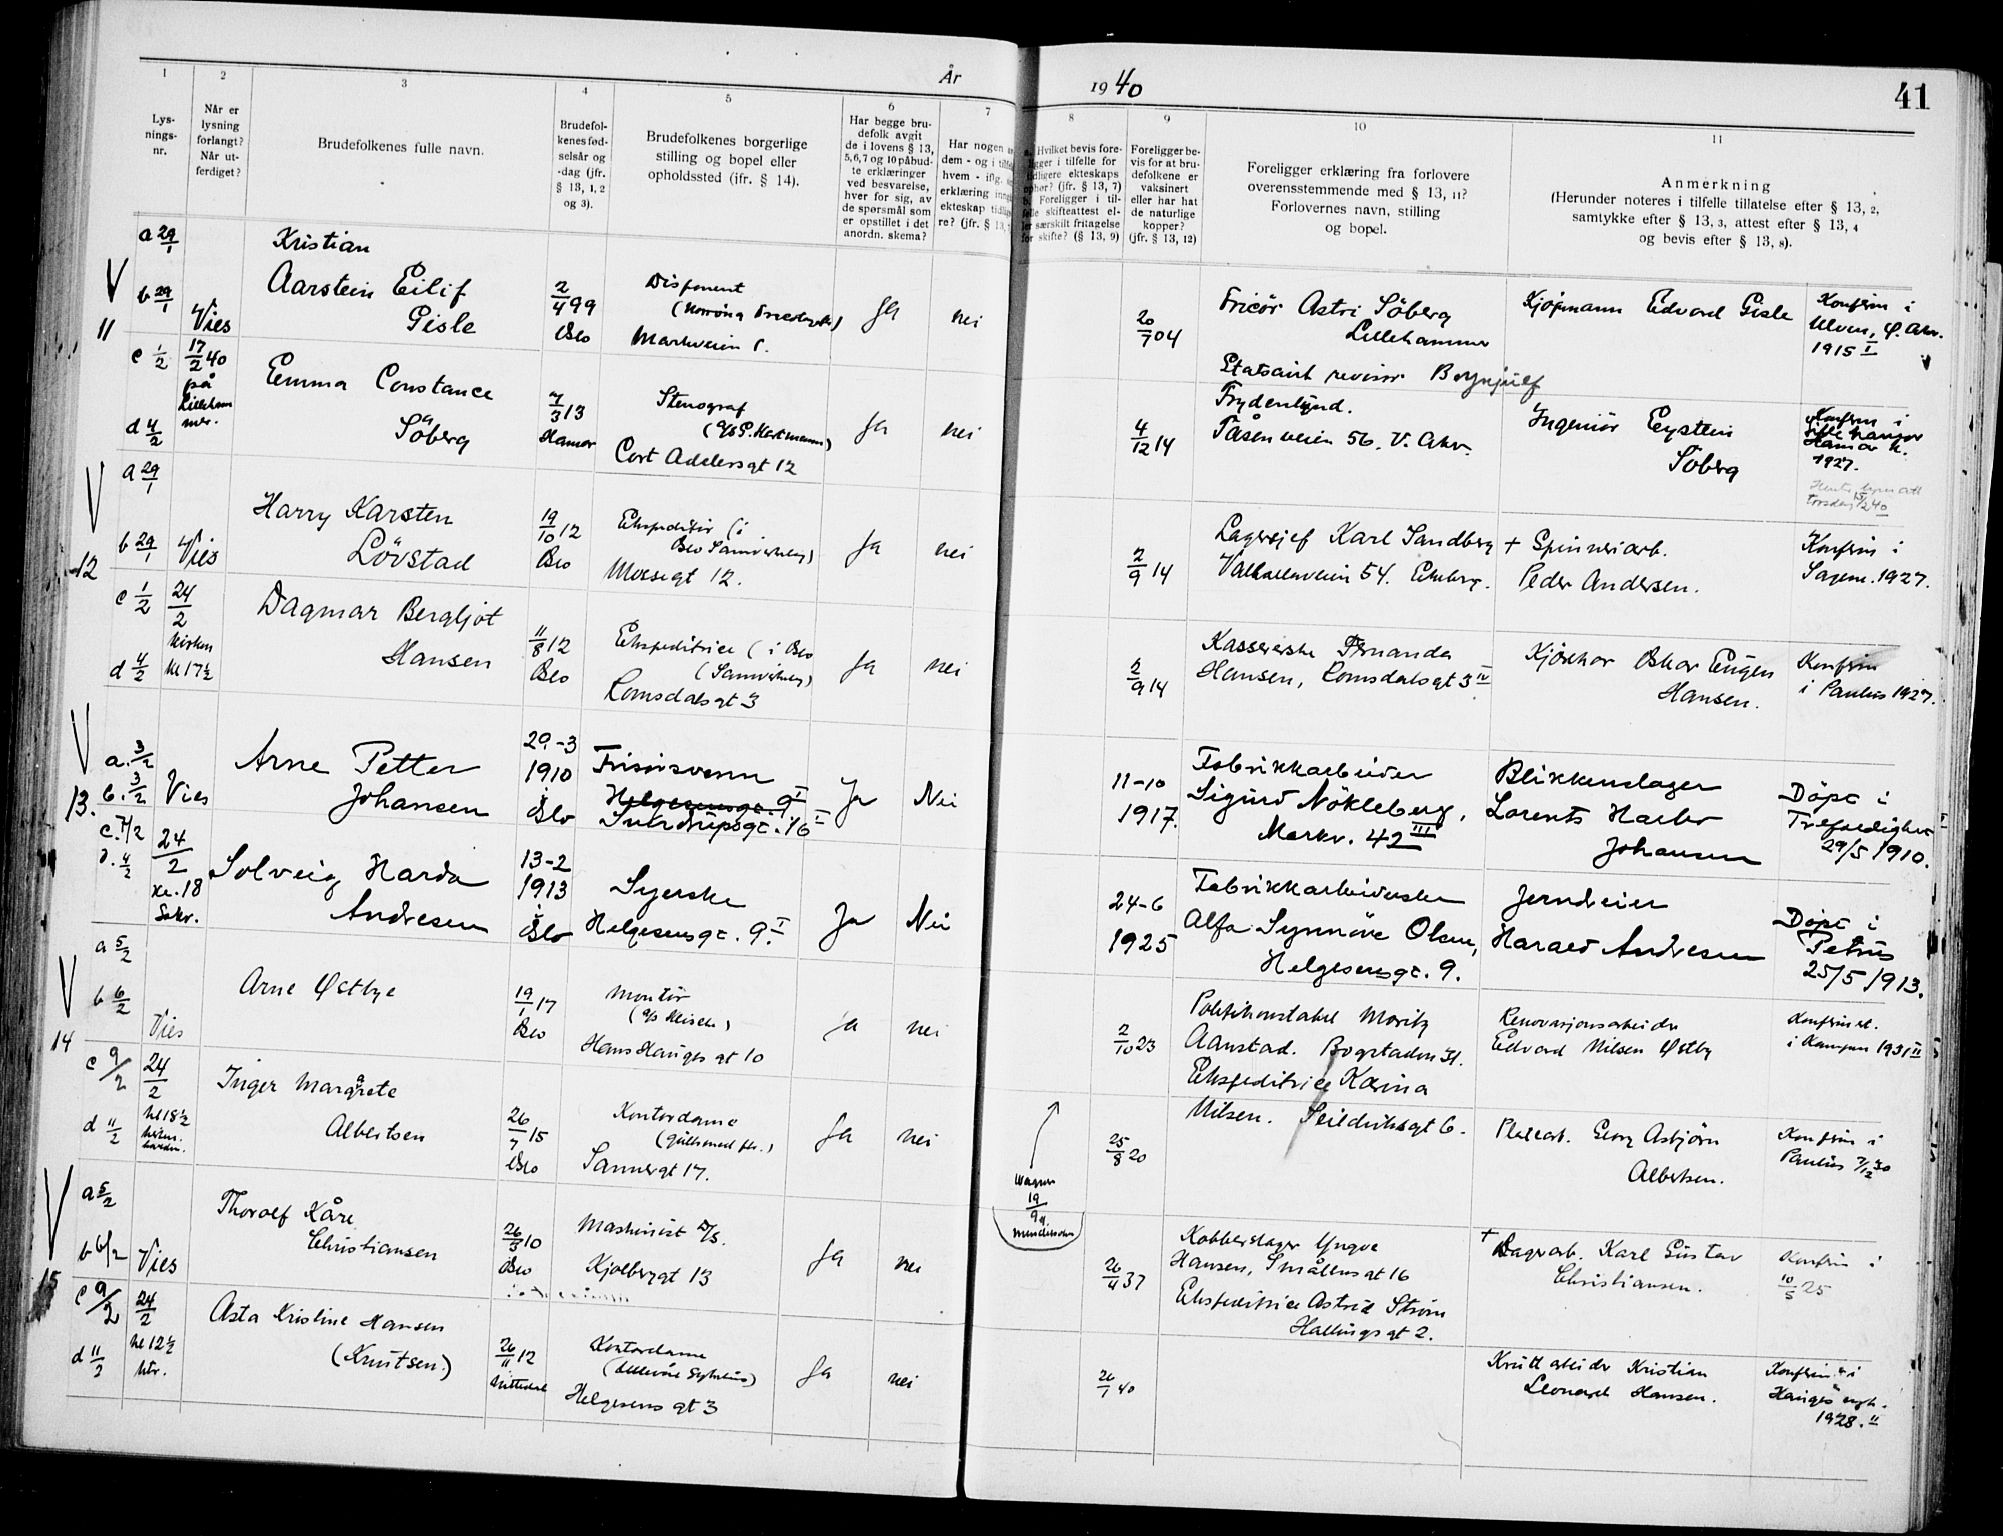 År
19 40
41
1
2
3
4
5
6
7
8
9
10
11
Lys-
nings-
nr.
Når er
lysning
forlangt?
Når ut-
ferdiget?
Brudefolkenes fulle navn.
Brudefol-
kenes fød-
selsår og
-dag (jfr.
§ 13, 1, 2
og 3).
Brudefolkenes borgerlige
stilling og bopel eller
opholdssted (jfr. § 14).
Har begge bru-
defolk avgit
de i lovens § 13,
5,6,7 og 10 påbud-
te erklæringer
ved besvarelse,
hver for sig, av
de spørsmål som
er opstillet i det
anordn. skema?
Har nogen
dem - og i
hvem - iflg.
erklæring
ekteskap
re? (jfr. § 13,
Hvilket bevis fore-
ligger i tilfelle for
tidligere ekteskaps
ophør? (jfr. § 13, 7)
b. Foreligger i til-
felle skifteattest el-
ler særskilt fritagelse
for skifte? (§ 13, 9)
Foreligger be-
vis for at bru-
defolkene er
vaksinert
eller har hat
de naturlige
kopper?
(jfr. § 13, 12)
Foreligger erklæring fra forlovere
overensstemmende med § 13, 11?
Forlovernes navn, stilling
og bopel.
Anmerkning
(Herunder noteres i tilfelle tillatelse efter § 13, 2,
samtykke efter § 13, 3, attest efter § 13, 4
og bevis efter § 13, 8).
11
a 29/1
b 29/1
c 1/2
d 4/2
Vies
17/2 40
på
Lilleham
mer.
Kristian
Aarstein Eilif
Gisle
2/4 99
Oslo
Disponent
Markveien
Ja
nei
20/7 04
Fricör Astri Söberg
Lillehammer
Kjöpmann Edvard Gisle
Konfirm i
Ulven, Ø. Aker.
1915 I
Emma Constance
Söberg
7/3 13
Hamar
Stenograf
(a/s P. Hartmann)
Cort Adelersgt 12
Ja
nei
4/12 14
revisor Brynjulf
Frydenlund.
Tåsenveien 56. V. Aker.
Ingeniör Eystein
Söberg
Konfirm i
Hamar k.
1927.
12
a 29/1
b 29/1
c 1/2
d 4/2
Vies
24/2
kirken
kl 17½
Harry Karsten
Lövstad
19/10 12
Oslo
Ekspeditör (i
Oslo Samvirkelag)
Moesgt 12.
Ja
nei
2/9 14
Lagersjef Karl Sandberg
Valhallaveien 54. Ekeberg.
+ Spinneriarb.
Peder Andersen.
Konfirm i
Sagene. 1927.
Dagmar Bergljot
Hansen
11/8 12
Oslo
Ekspeditrice ( i Oslo
(Samvirkelag)
Romsdalsgt 3
Ja
nei
2/9 14
Kassererske Fernanda
Hansen, Romsdalsgt 3 IV
Kjörekar Oskar Eugen
Hansen.
Konfirm
i Paulus 1927.
13.
a. 3/2
b. 3/2
c. 7/2
d. 4/2
Vies
24/2
kl. 18
Sakr.
Arne Petter
Johansen
29-3
1910
i
Oslo
Frisörsvenn
Helgesensgt. 9 I
Sverdrupsgt. 16 I
Ja
Nei
11-10
1917.
Fabrikkarbeider
Sigurd Nökleberg,
Markv. 42 III
Blikkenslager
Lorents Harbo
Johansen
Döpt i
Trefoldighet
29/5 1910.
Solveig Harda
Andresen
13-2
1913
i
Oslo
Syerske
Helgesensgt. 9. I
Ja
Nei
24-6
1925
Fabrikkarbeiderske
Alfa Synnöve Olsen,
Helgesensgt. 9.
Jernbeier
Harald Andresen
Döpt i
Petrus
25/5 1913.
14
a 5/2
b 6/2
c 9/2
d 11/2
Vies
24/2
kl 18½
Arne Østbye
19/1 17
Oslo
Montör
Hans Hauges gt 10
Ja
nei
2/10 23
Politikonstabel Moritz
Aanstad. Bogstadvn 31.
Ekspeditrice Karina
Nilsen. Seilduksgt 6.
Renovasjonsarbeider
Edvard Nilsen Østby
Konfirmert.
i Kampen 1931 II
Inger Margrete
Albertsen
26/7 15
Oslo
Kontordame
Sannergt 17.
Ja
nei
Wagner
19/9
Mendelssohn
25/8 20
Platearb. Georg Asbjörn
Albertsen.
Konfirm i
Paulus 7/12 30
15
a 5/2
b 6/2
c 9/2
d 11/2
Vies
24/2
kl 12½
ktr.
Thoralf Kåre
Christiansen
26/3 10
Oslo
Maskinist D/S.
Kjølberggt 13
Ja
nei
26/4 37
Kobberslager Yngve
Hansen, Smålensgt 16
Ekspeditrice Astrid Ström
Hallingsgt 2.
+ Lagerarb. Karl Gustav
Christiansen.
Konfirm i
10/5 25
Asta Kristine Hansen
(Knutsen)
26/11 12
Nittedal
Kontordame
Helgesens gt 3
Ja
nei
26/1 40
Kruttarbeider Kristian
Leonard Hansen.
Konfirm i
Hauges
1928. II